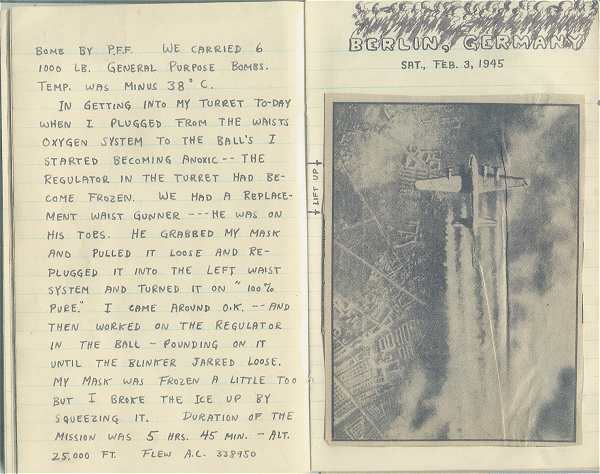 BOMB BY P.F.F. WE CARRIED 6
1000 LB. GENERAL PURPOSE BOMBS.
TEMP. WAS MINUS 38° C.
IN GETTING INTO MY TURRET TO-DAY
WHEN I PLUGGED FROM THE WAISTS
OXYGEN SYSTEM TO THE BALL'S I
STARTED BECOMING ANOXIC -- THE
REGULATOR IN THE TURRET HAD BE-
COME FROZEN. WE HAD A REPLACE-
MENT WAIST GUNNER --- HE WAS ON
HIS TOES. HE GRABBED MY MASK
AND PULLED IT LOOSE AND RE-
PLUGGED IT INTO THE LEFT WAIST
SYSTEM AND TURNED IT ON "100%
PURE." I CAME AROUND O.K. -- AND
THEN WORKED ON THE REGULATOR
IN THE BALL - POUNDING ON IT
UNTIL THE BLINKER JARRED LOOSE.
MY MASK WAS FROZEN A LITTLE TOO
BUT I BROKE THE ICE UP BY
SQUEEZING IT. DURATION OF THE
MISSION WAS 5 HRS. 45 MIN. - ALT.
25,000 FT. FLEW A.C. 338950
BERLIN, GERMANY
SAT., FEB. 3, 1945
LIFT UP